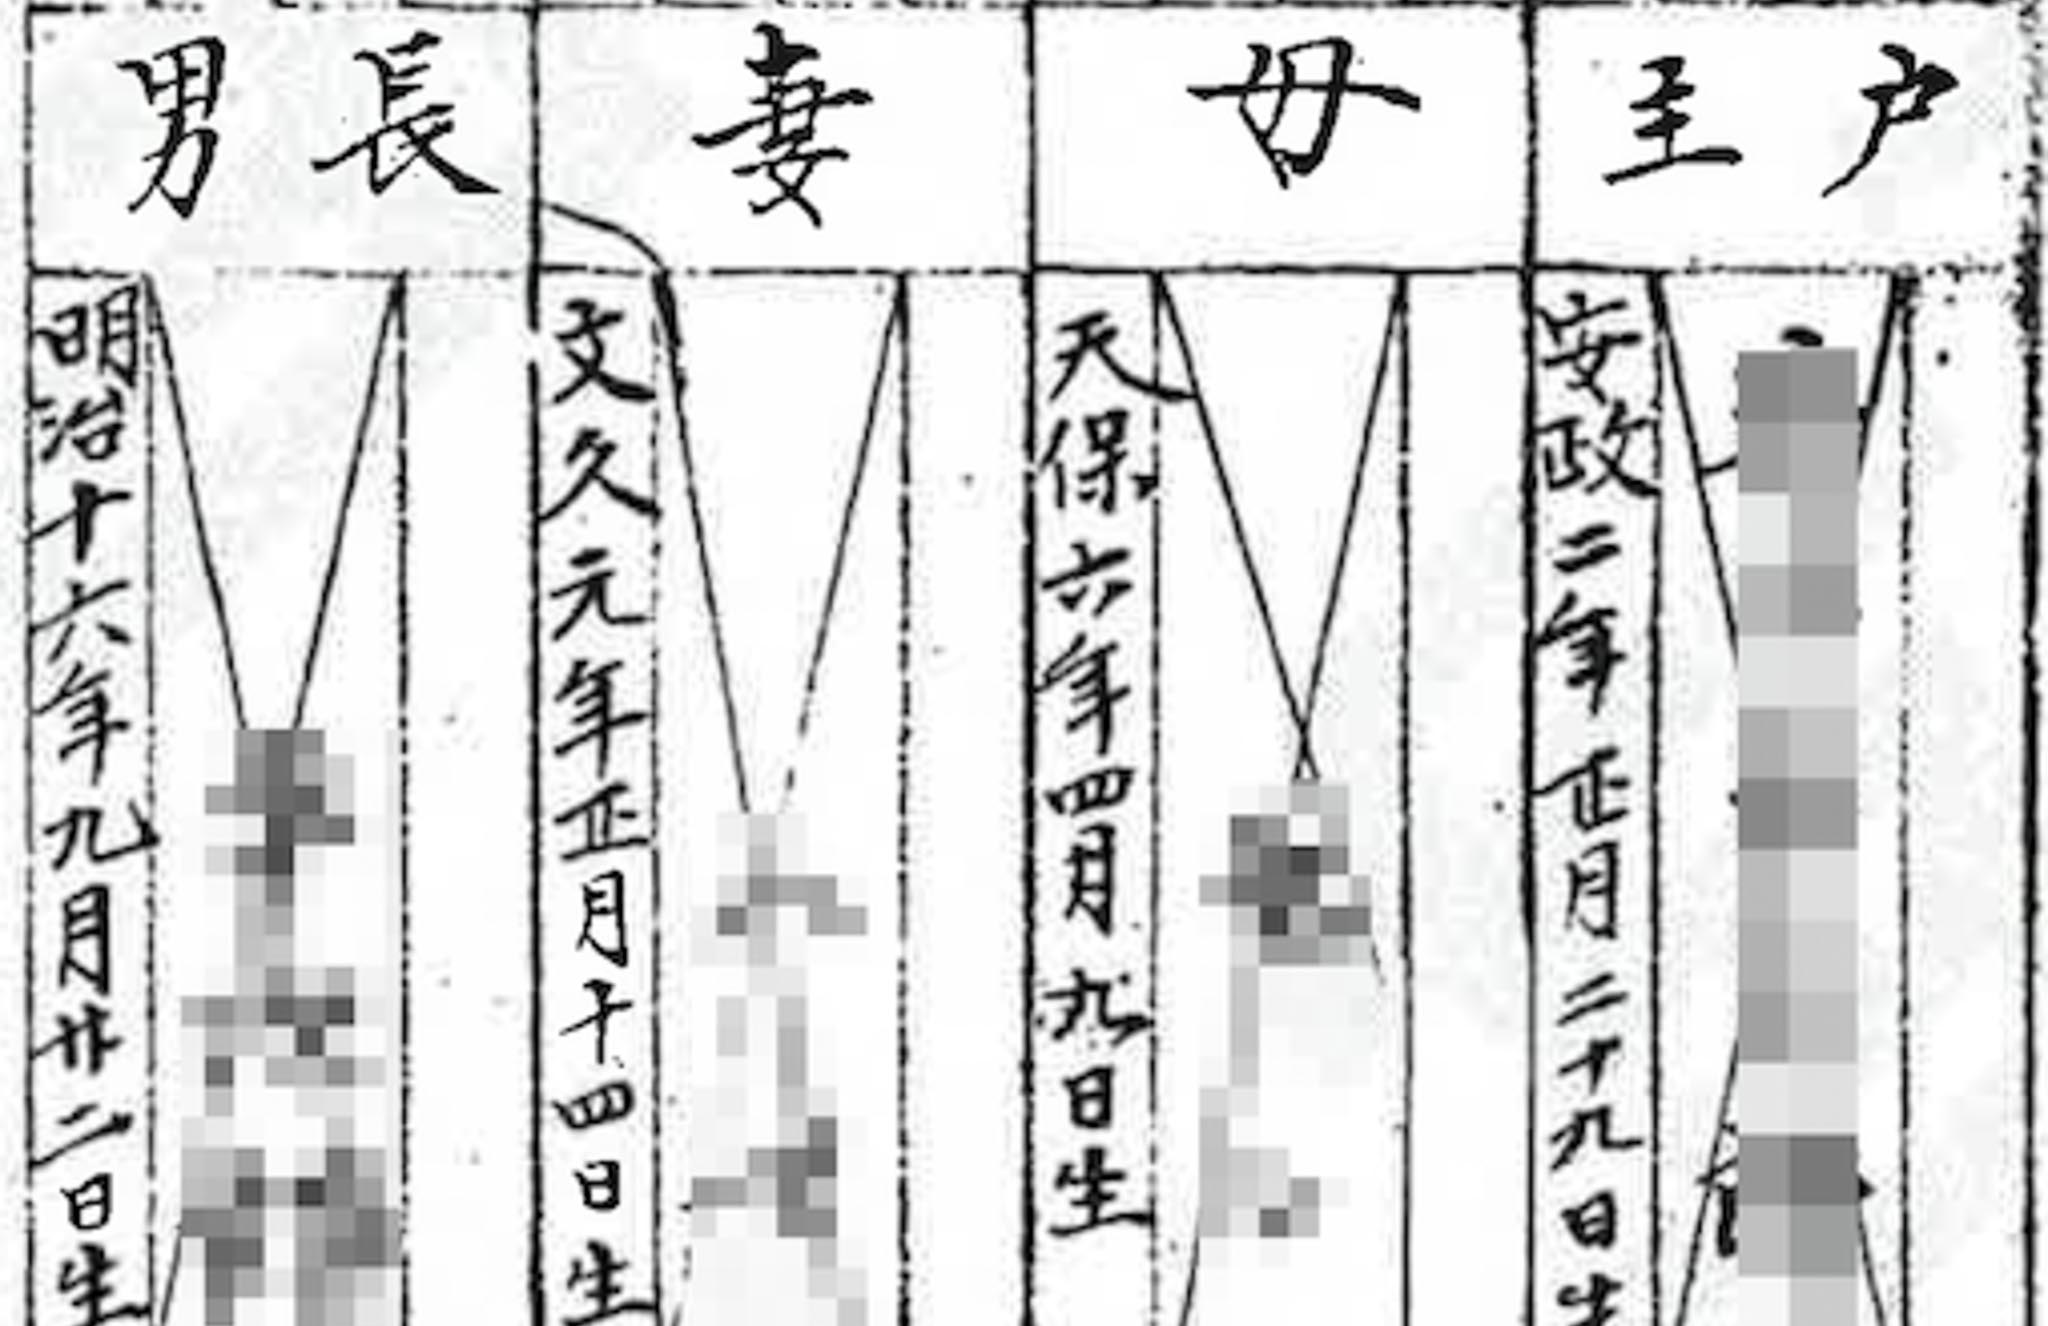 戸主
安政二年正月二十九日生
母
天保六年四月九日生
妻
文久元年正月十四日生
長男
明治十六年九月廿二日生